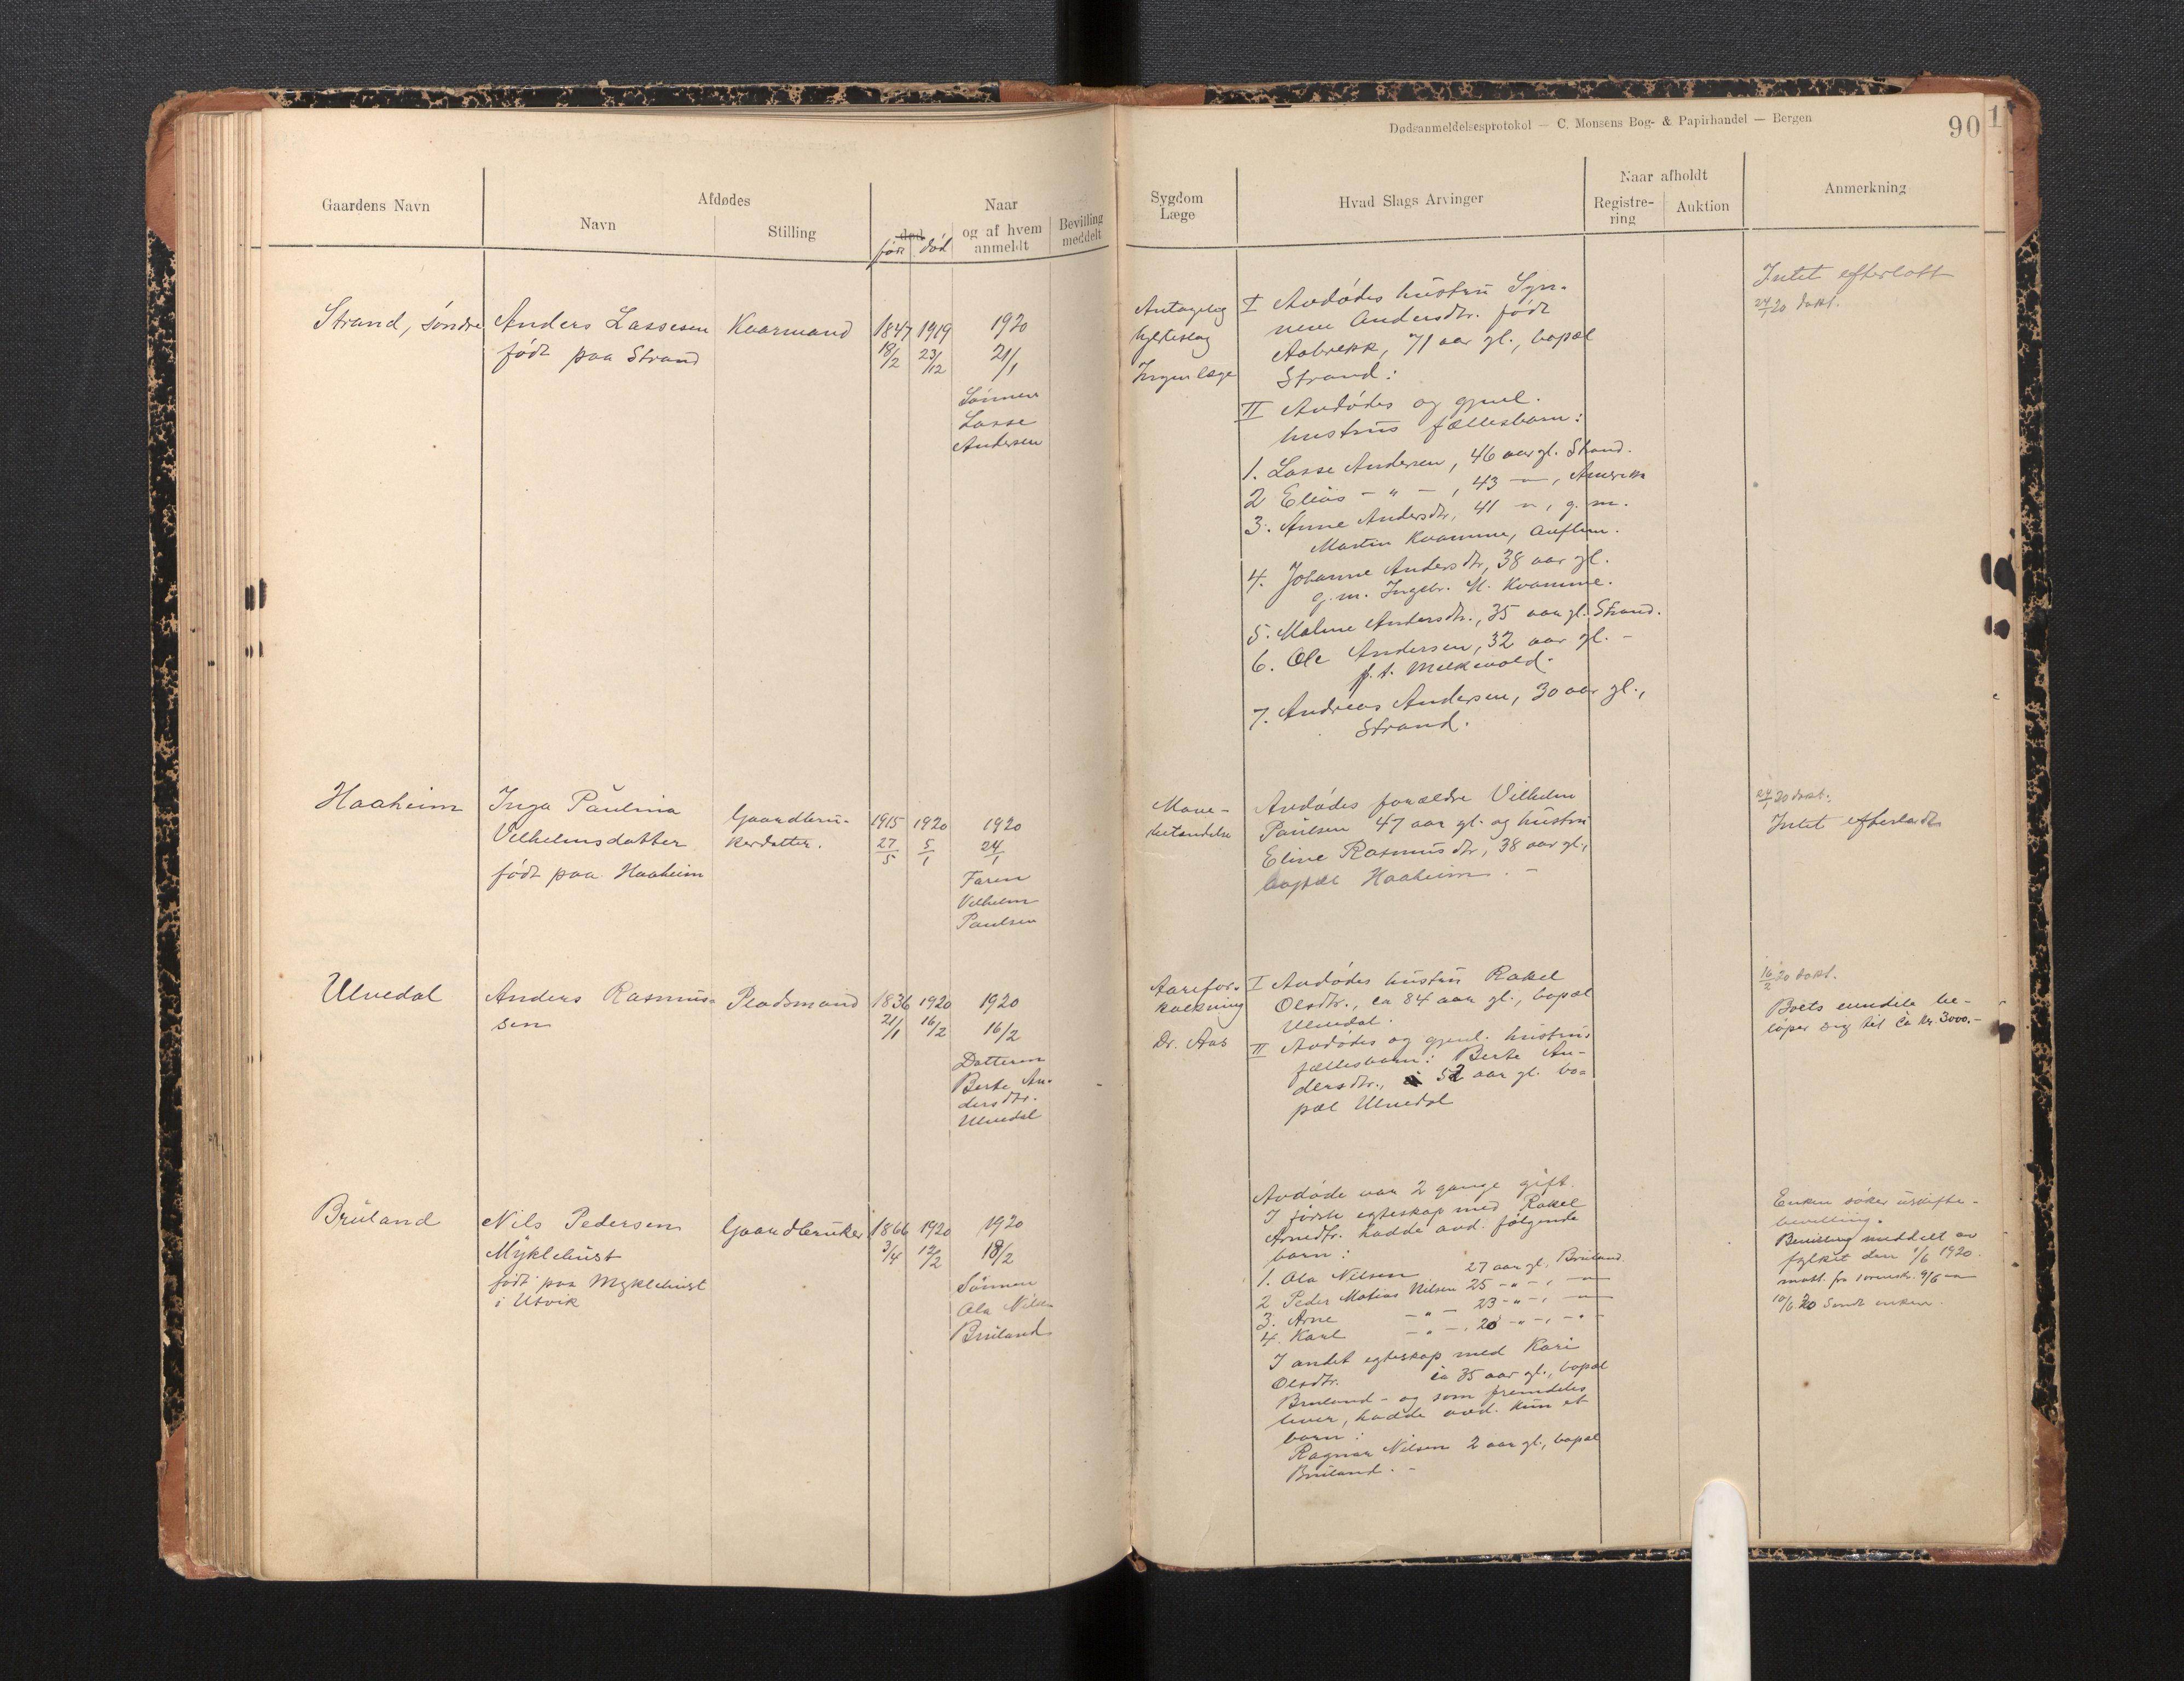 Dødsanmeldelsesprotokol — C. Monsens Bog- & Papirhandel — Bergen
90
1
Gaardens Navn
Afdødes
Navn
Stilling
død
født
død
Naar
og af hvem
anmeldt
Bevilling
meddelt
Sygdom
Læge
Hvad Slags Arvinger
Naar afholdt
Registre-
ring
Auktion
Anmerkning
Strand, søndre
Anders Lassesen
født paa Strand
Kaarmand
1847
18/2
1919
23/12
1920
21/1
Sønnen
Lasse
Andersen
Antagelig
Ingen læge
I Avdødes hustru Syn-
neve Andersdtr. født
Aabrekk, 71 aar gl., bopæl
Strand:
II Avdødes og gjenl.
hustrus fællesbarn:
1. Lasse Andersen, 46 aar gl. Strand.
2 Elias - " - , 43 — , Amerika
3. Anne Andersdtr, 41 — , g. m.
Martin Kvamme, Auflem.
4. Johanne Andersdtr, 38 aar gl.
g. m. Ingebr. M. Kvamme.
5. Maline Andersdtr., 35 aar gl. Strand.
6. Ole Andersen, 32 aar gl. -
p. t. Melkevold.
7. Andreas Andersen, 30 aar gl.,
Strand.
Intet efterlatt
24/1 20 dokt.
Haaheim
Inga Paulina
Vilhelmsdatter
født paa Haaheim
Gaardbru-
kerdatter.
1915
27/5
1920
5/1
1920
24/1
Faren
Vilhelm
Paulsen
Mave-
betændelse
Avdødes forældre Vilhelm
Paulsen 47 aar gl. og hustru
Eline Rasmusdtr, 38 aar gl.,
bopæl Haaheim. -
24/1 20 dokt.
Intet efterladt
Ulvedal
Anders Rasmus-
sen
Pladsmand
1836
21/1
1920
16/2
1920
16/2
Datteren
Berte An-
dersdtr.
Ulvedal
Aarefor-
kalkning
Dr. Aas
I Avdødes hustru Rakel
Olsdtr., ca 84 aar gl., bopæl
Ulvedal.
II Avdødes og gjenl. hustrus
fællesbarn: Berte An-
dersdtr., 52 aar gl. bo-
pæl Ulvedal
16/2 20 dokt.
Boets eiendele be-
løper sig til ca kr. 3000.-
Bruland
Nils Pedersen
Myklebust
født paa Myklebust
i Utvik
Gaardbruker
1866
3/4
1920
12/2
1920
18/2
Sønnen
Ola Nilsen
Bruland
Avdøde var 2 gange gift.
I første egteskap med Rakel
Arnedtr. hadde avd. følgende
barn:
1. Ola Nilsen 27 aar gl, Bruland
2 Peder Matias Nilsen 25 - " - , —
3. Arne - " - 23 - " - , —
4. Karl - " - , 20 - " - , - " -
I andet egteskap med Kari
Olsdtr. ca 35 aar gl., bopæl
Bruland - og som fremdeles
lever, hadde avd. kun et
barn:
Ragnar Nilsen 2 aar gl., bopæl
Bruland. -
Enken søker uskifte-
bevilling.
Bevilling meddelt av
fylket den 1/6 1920.
10/6 20 Sendt enken.